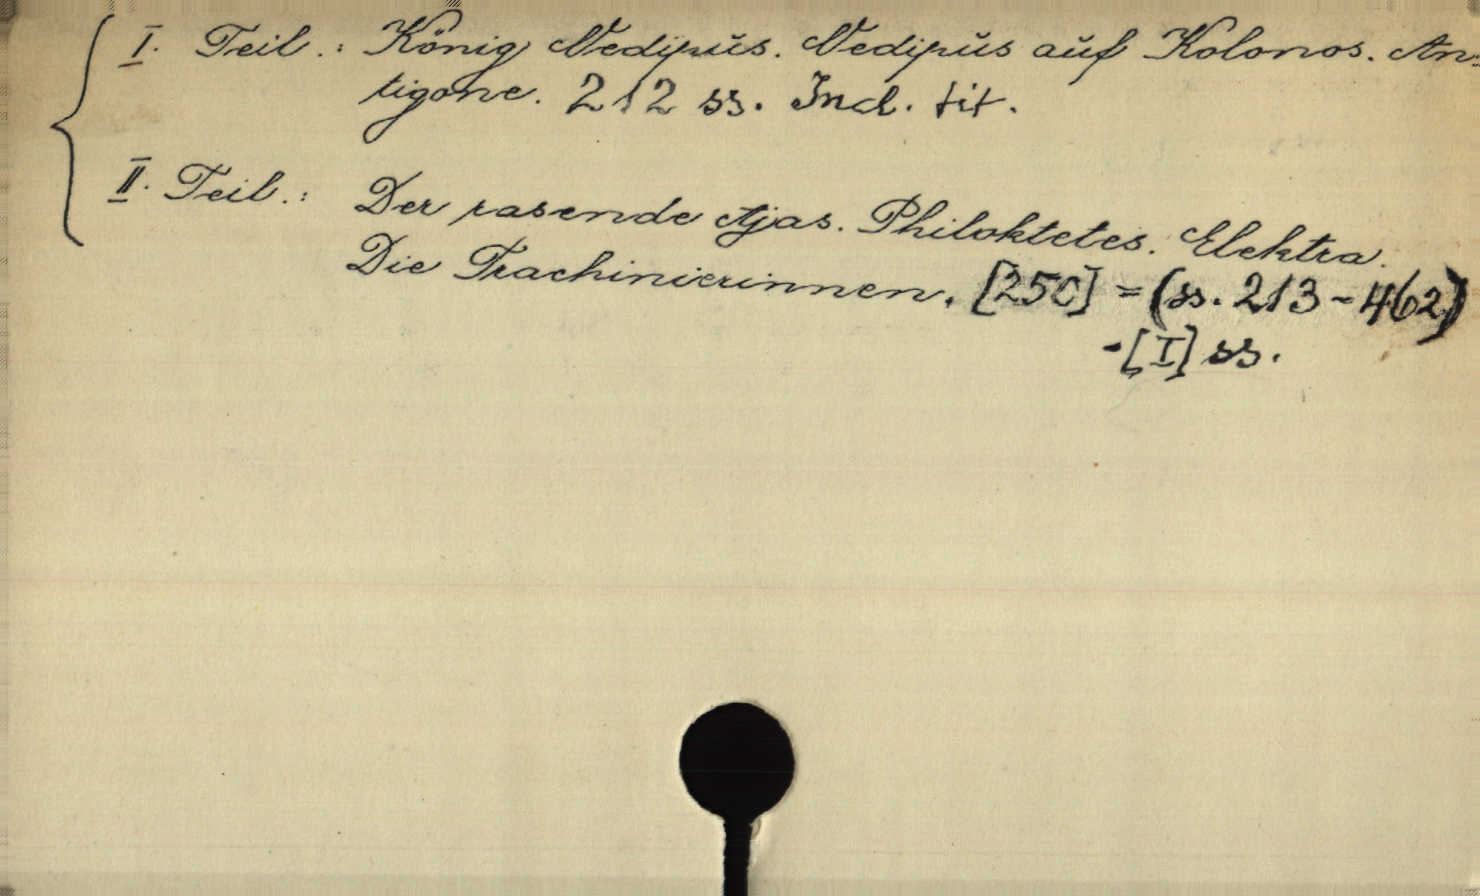 I. Teil.: König Oedipŭs. Oedipŭs aŭf Kolonos. An=
tigone. 212 ss. Incl. tit.
II. Teil.: Der rasende Ajas. Philoktetes. Elektra.
Die Trachinierinnen. [250] = (ss. 213-462)
-[I] ss.